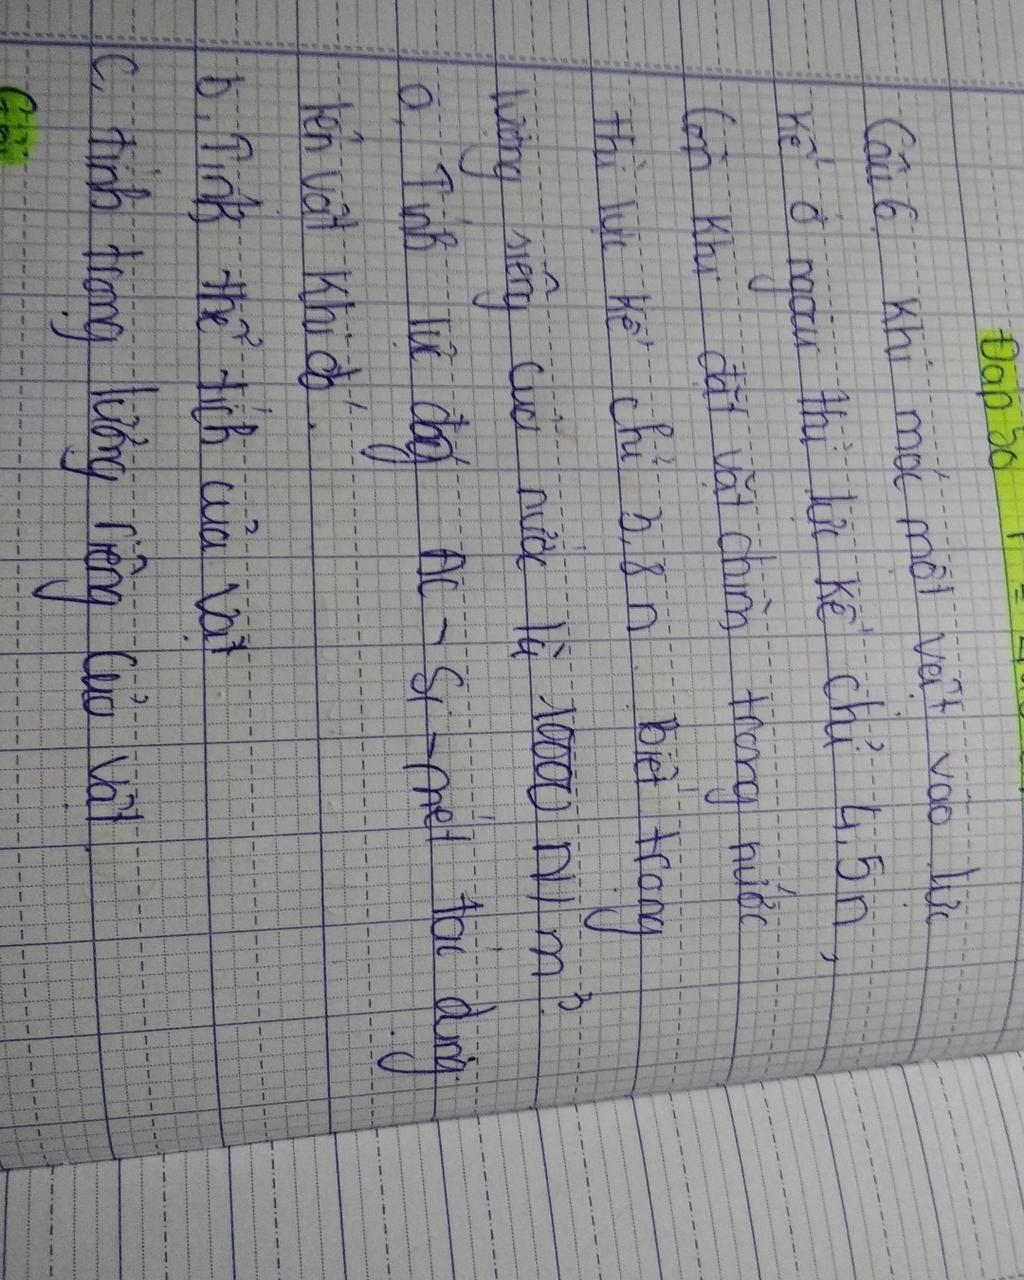 Đáp số
Câu 6. Khi móc một vật vào lực
kế ở ngoài thì lực kế chỉ 4,5n,
Còn khi đặt vật chìm trong nước
thì lực kế chỉ 3,8 n biết trọng
lượng riêng của nước là 10000 N/m³
a, Tính lực đẩy Ác - Si - mét tác dụng
lên vật khi đó.
b, Tính thể tích của vật
c tính trọng lượng riêng của vật